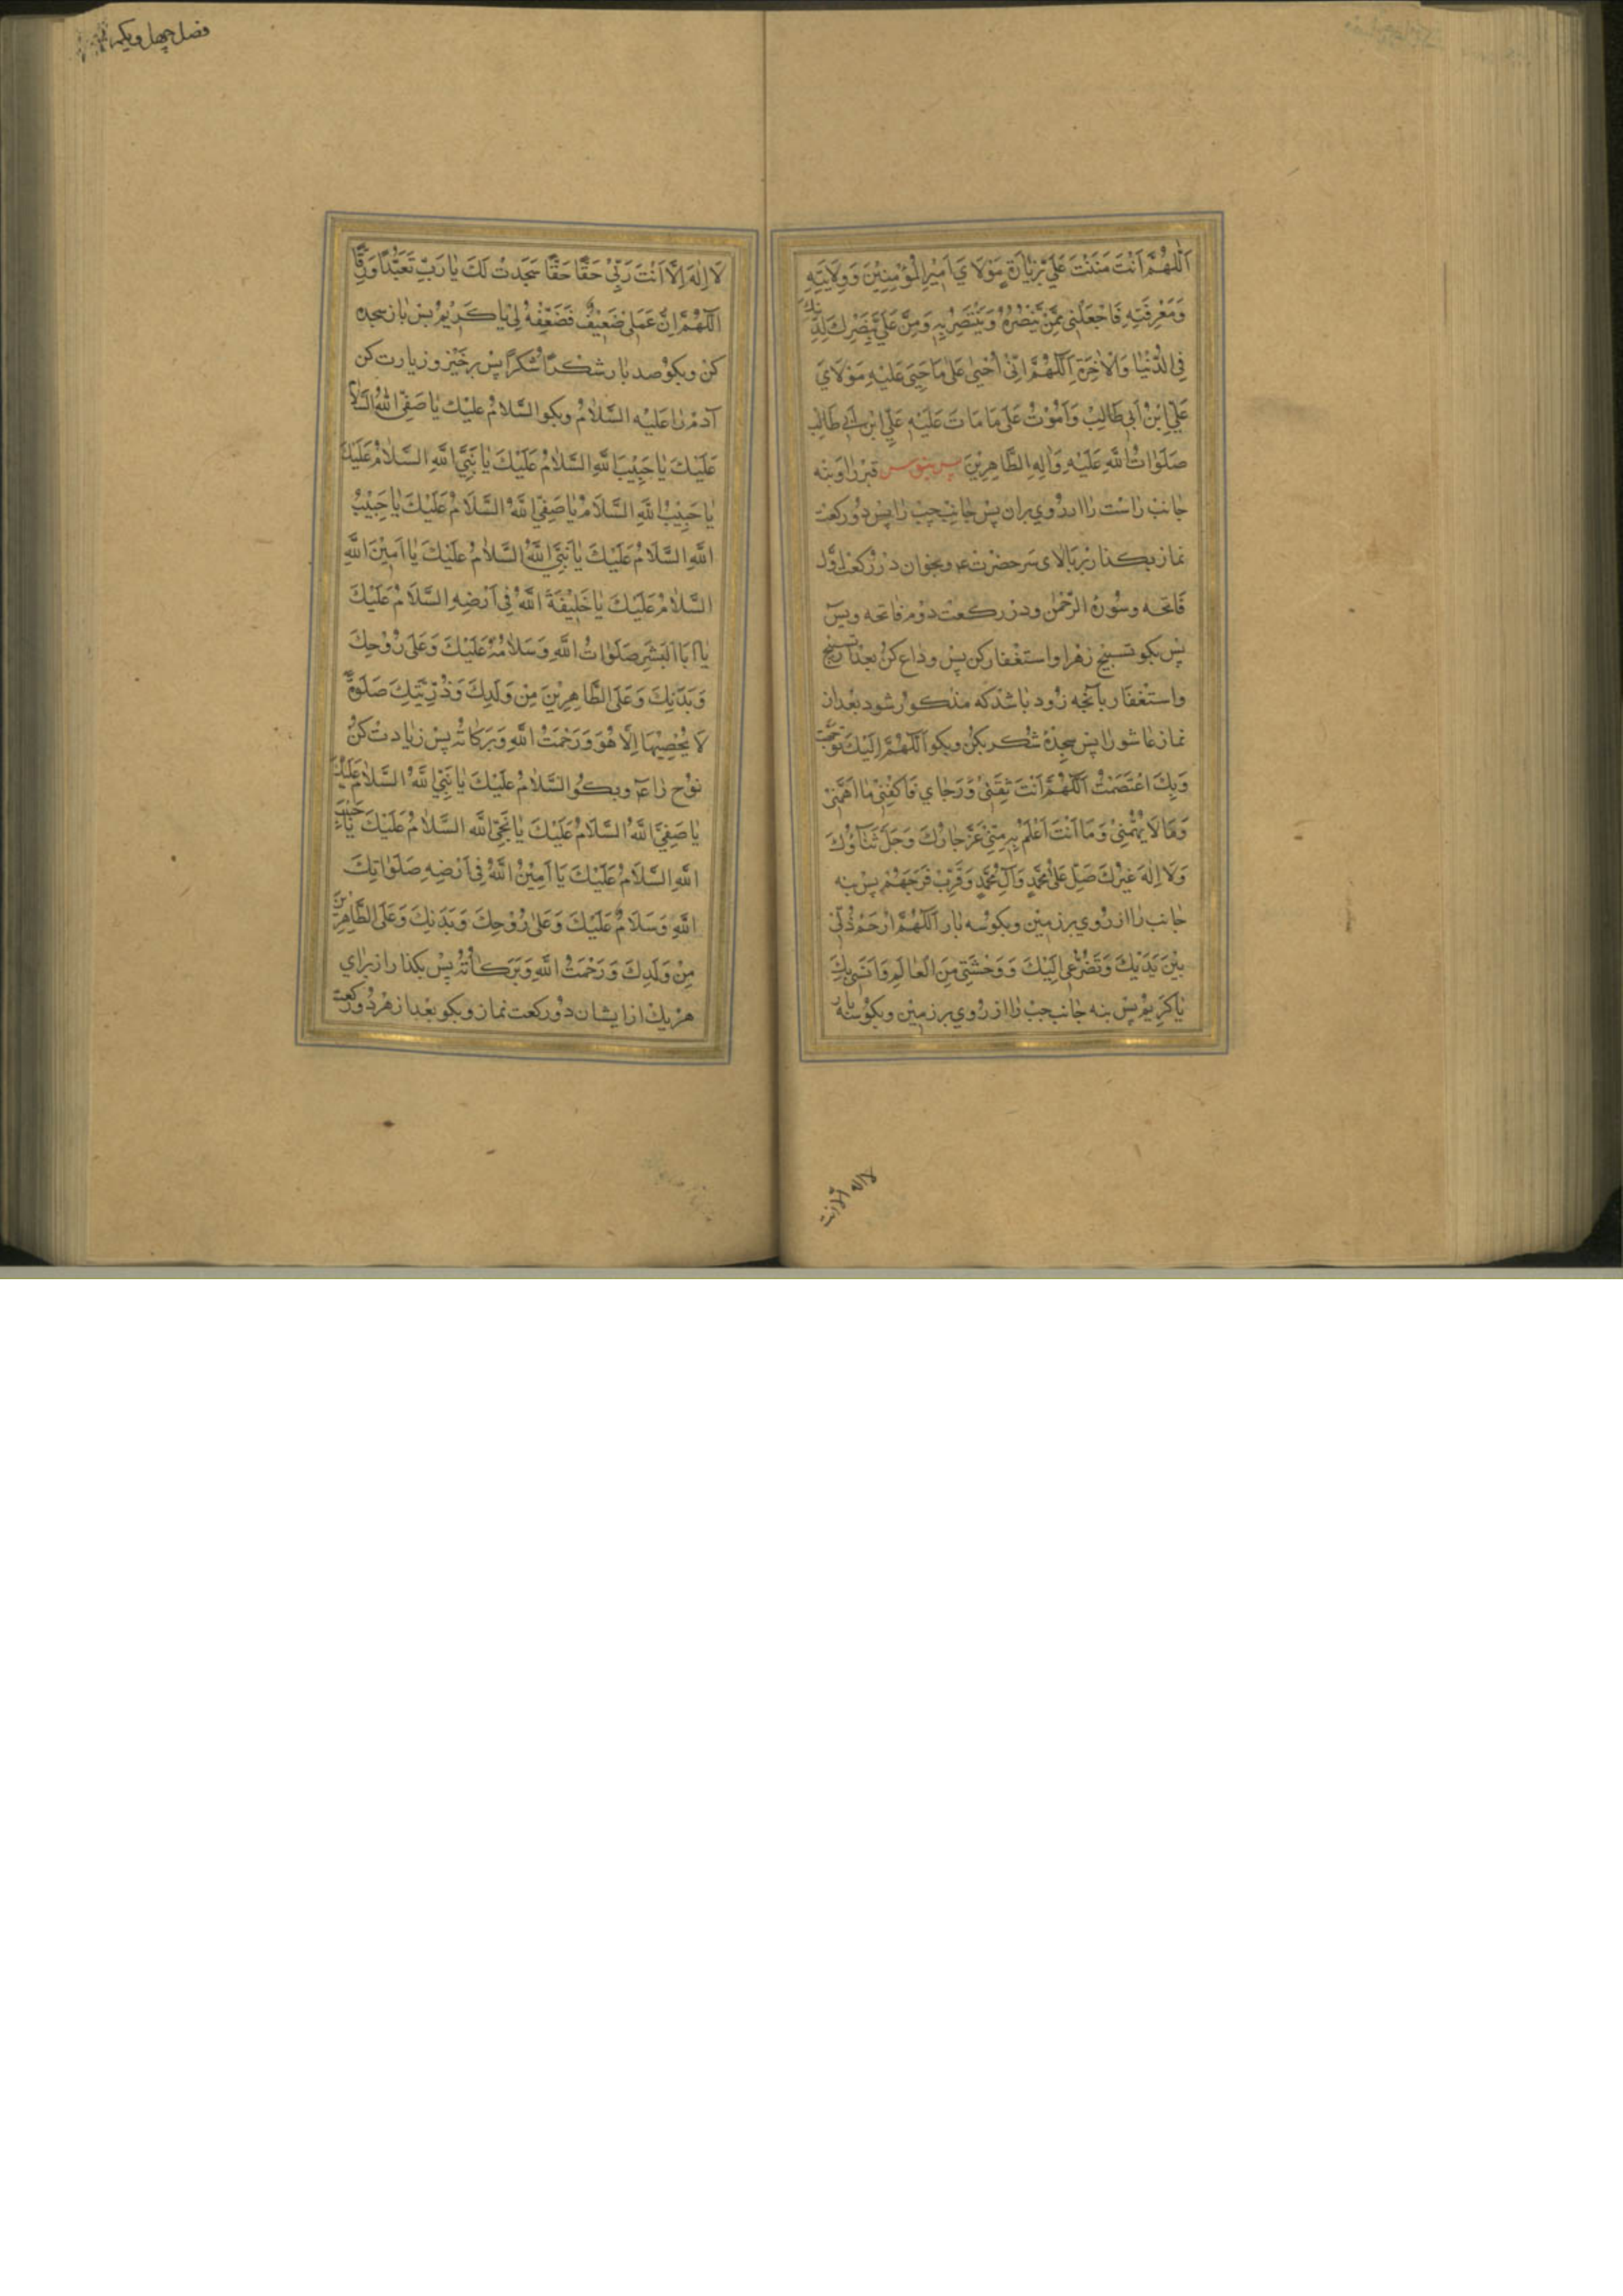 اَللّٰهُمَّ اَنْتَ مَنَنْتَ عَلَيَّ بِزِيَارَةِ مَوْلَايَ اَمِيْرِ الْمُؤْمِنِيْنَ وَوِلَايَتِهِ
وَمَعْرِفَتِهِ فَاجْعَلْنِي مِمَّنْ يَنْصُرُهُ وَيَنْتَصِرُ بِهِ وَمِنَّ عَلَيَّ بِنَصْرِكَ لِدِيْنِكَ
فِي الدُّنْيَا وَالْاٰخِرَةِ اَللّٰهُمَّ اِنِّيْ اَحْيٰى عَلٰى مَا حَيِيَ عَلَيْهِ مَوْلَايَ
عَلِيّ اِبْنُ اَبِي طَالِبْ وَاَمُوْتُ عَلٰى مَا مَاتَ عَلَيْهِ عَلِيّ ابْنِ اَبِي طَالِبْ
صَلَوَاتُ اللّٰهِ عَلَيْهِ وَاٰلِهِ الطَّاهِرِيْنَ پس ببوس قبر را و بنه
جانب راست را از روي بران پس جانب چپ را پس دو ركعت
نماز بكذار بر بالاى سر حضرت ع و بخوان در ركعت اول
فاتحه و سورهٔ الرحمن و در ركعت دوم فاتحه و يس
پس بكو تسبيح زهرا و استغفار كن پس وداع كن بعد تسبيح
و استغفار بآنچه زود باشد كه مذكور شود بعد ازان
نماز عاشورا پس سجدهٔ شكر بكن و بكو اَللّٰهُمَّ اِلَيْكَ تَوَجَّهْتُ
وَبِكَ اعْتَصَمْتُ اَللّٰهُمَّ اَنْتَ ثِقَتِيْ وَرَجَايِ فَاكْفِنِيْ مَا اَهَمَّنِيْ
وَمَا لَا يُهِمُّنِيْ وَمَا اَنْتَ اَعْلَمُ بِهِ مِنِّيْ عَزَّ جَارُكَ وَجَلَّ ثَنَاؤُكَ
وَلَا اِلٰهَ غَيْرُكَ صَلِّ عَلٰى مُحَمَّدٍ وَآلِ مُحَمَّدٍ وَقَرِّبْ فَرَجَهُمْ پس بنه
جانب را از روي بر زمين و بكو سه بار اَللّٰهُمَّ ارْحَمْ ذُلِّيْ
بَيْنَ يَدَيْكَ وَتَضَرُّعِي اِلَيْكَ وَوَحْشَتِي مِنَ الْعَالَمِ وَاُنْسِي بِكَ
يَا كَرِيْمُ پس بنه جانب چپ را از روي بر زمين و بكو سه بار
لا اله الا انت
فصل چهل و يكم
لَا اِلٰهَ اِلَّا اَنْتَ رَبِّيْ حَقًّا حَقًّا سَجَدْتُ لَكَ يَا رَبِّ تَعَبُّدًا وَرِقًّا
اَللّٰهُمَّ اِنَّ عَمَلِيْ ضَعِيْفٌ فَضَعِّفْهُ لِيْ يَا كَرِيْمُ پس باز سجده
كن و بكو صد بار شُكْرًا شُكْرًا پس برخيز و زيارت كن
آدم را عليه السلام و بكو السَّلَامُ عَلَيْكَ يَا صَفِيَّ اللّٰهِ السَّلَامُ
عَلَيْكَ يَا حَبِيْبَ اللّٰهِ السَّلَامُ عَلَيْكَ يَا نَبِيَّ اللّٰهِ السَّلَامُ عَلَيْكَ
يَا حَبِيْبُ اللّٰهِ السَّلَامُ يَا صَفِيَّ اللّٰهُ السَّلَامُ عَلَيْكَ يَا حَبِيْبُ
اللّٰهِ السَّلَامُ عَلَيْكَ يَا نَبِيَّ اللّٰهُ السَّلَامُ عَلَيْكَ يَا اَمِيْنَ اللّٰهِ
السَّلَامُ عَلَيْكَ يَا خَلِيْفَةَ اللّٰهُ فِي اَرْضِهِ السَّلَامُ عَلَيْكَ
يَا اَبَا الْبَشَرِ صَلَوَاتُ اللّٰهِ وَسَلَامُهُ عَلَيْكَ وَعَلٰى رُوْحِكَ
وَبَدَنِكَ وَعَلَى الطَّاهِرِيْنَ مِنْ وَلَدِكَ وَذُرِّيَّتِكَ صَلٰوةً
لَا يُحْصِيْهَا اِلَّا هُوَ وَرَحْمَتُ اللّٰهِ وَبَرَكَاتُهُ پس زيادت كن
نوح را ع و بكو السَّلَامُ عَلَيْكَ يَا نَبِيَّ اللّٰهُ السَّلَامُ عَلَيْكَ
يَا صَفِيَّ اللّٰهُ السَّلَامُ عَلَيْكَ يَا نَجِيَّ اللّٰهِ السَّلَامُ عَلَيْكَ يَا حَبِيْبَ
اللّٰهِ السَّلَامُ عَلَيْكَ يَا اَمِيْنُ اللّٰهُ فِي اَرْضِهِ صَلَوَاتِكَ
اللّٰهِ وَسَلَامُ عَلَيْكَ وَعَلٰى رُوْحِكَ وَبَدَنِكَ وَعَلَى الطَّاهِرِيْنَ
مِنْ وَلَدِكَ وَرَحْمَتُ اللّٰهِ وَبَرَكَاتُهُ پس بكذار از براي
هر يك از ايشان دو ركعت نماز و بكو بعد از هر دو ركعت